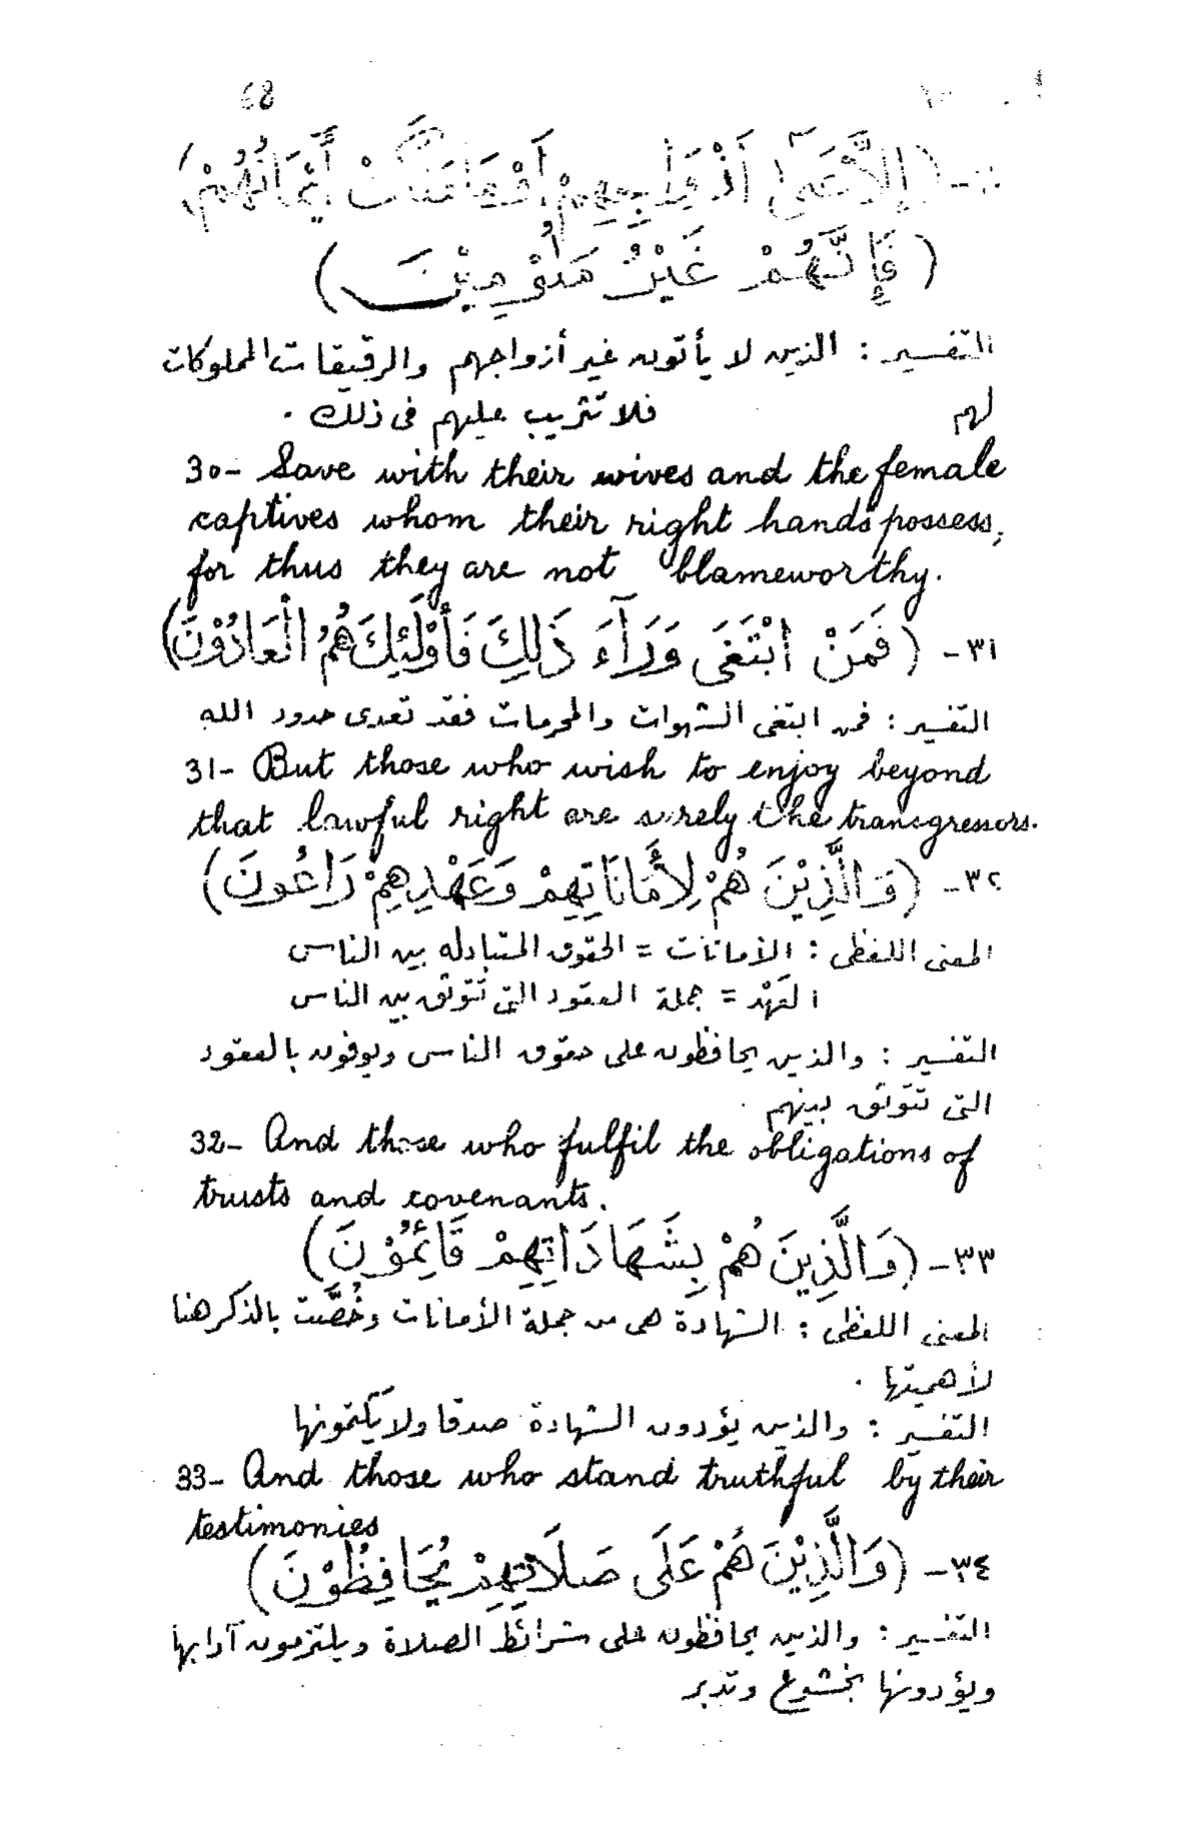 68
٣٠- (إِلَّا عَلَىٰٓ أَزْوَاجِهِمْ أَوْ مَا مَلَكَتْ أَيْمَانُهُمْ)
(فَإِنَّهُمْ غَيْرُ مَلُوْمِيْنَ)
التفسير : الذين لا يأتون غير أزواجهم والرقيقات المملوكات
لهم فلا تثريب عليهم فى ذلك .
30- Save with their wives and the female
captives whom their right hands possess,
for thus they are not blameworthy.
٣١- (فَمَنْ ابْتَغَى وَرَآءَ ذَلِكَ فَأُوْلَئِكَ هُمُ الْعَادُوْنَ)
التفسير : فمن ابتغى الشهوات والمحرمات فقد تعدى حدود الله
31- But those who wish to enjoy beyond
that lawful right are surely the transgressors.
٣٢- (وَالَّذِيْنَ هُمْ لِأَمَانَاتِهِمْ وَعَهْدِهِمْ رَاعُونَ)
المعنى اللفظى : الأمانات = الحقوق المتبادله بين الناس
العَهْد = جملة العقود التى تتوثق بين الناس
التفسير : والذين يحافظون على حقوق الناس ويوفون بالعقود
التى تتوثق بينهم .
32- And those who fulfil the obligations of
trusts and covenants.
٣٣- (وَالَّذِينَ هُمْ بِشَهَادَاتِهِمْ قَائِمُوْنَ)
المعنى اللفظى : الشهادة هى من جملة الأمانات وخُصَّت بالذكر هنا
لأهميتها .
التفسير : والذين يؤدون الشهادة صدقا ولا يكتمونها
33- And those who stand truthful by their
testimonies
٣٤- (وَالَّذِيْنَ هُمْ عَلَى صَلَاتِهِمْ يُحَافِظُوْنَ)
التفسير : والذين يحافظون على شرائط الصلاة ويلتزمون آدابها
ويؤدونها بخشوع وتدبر